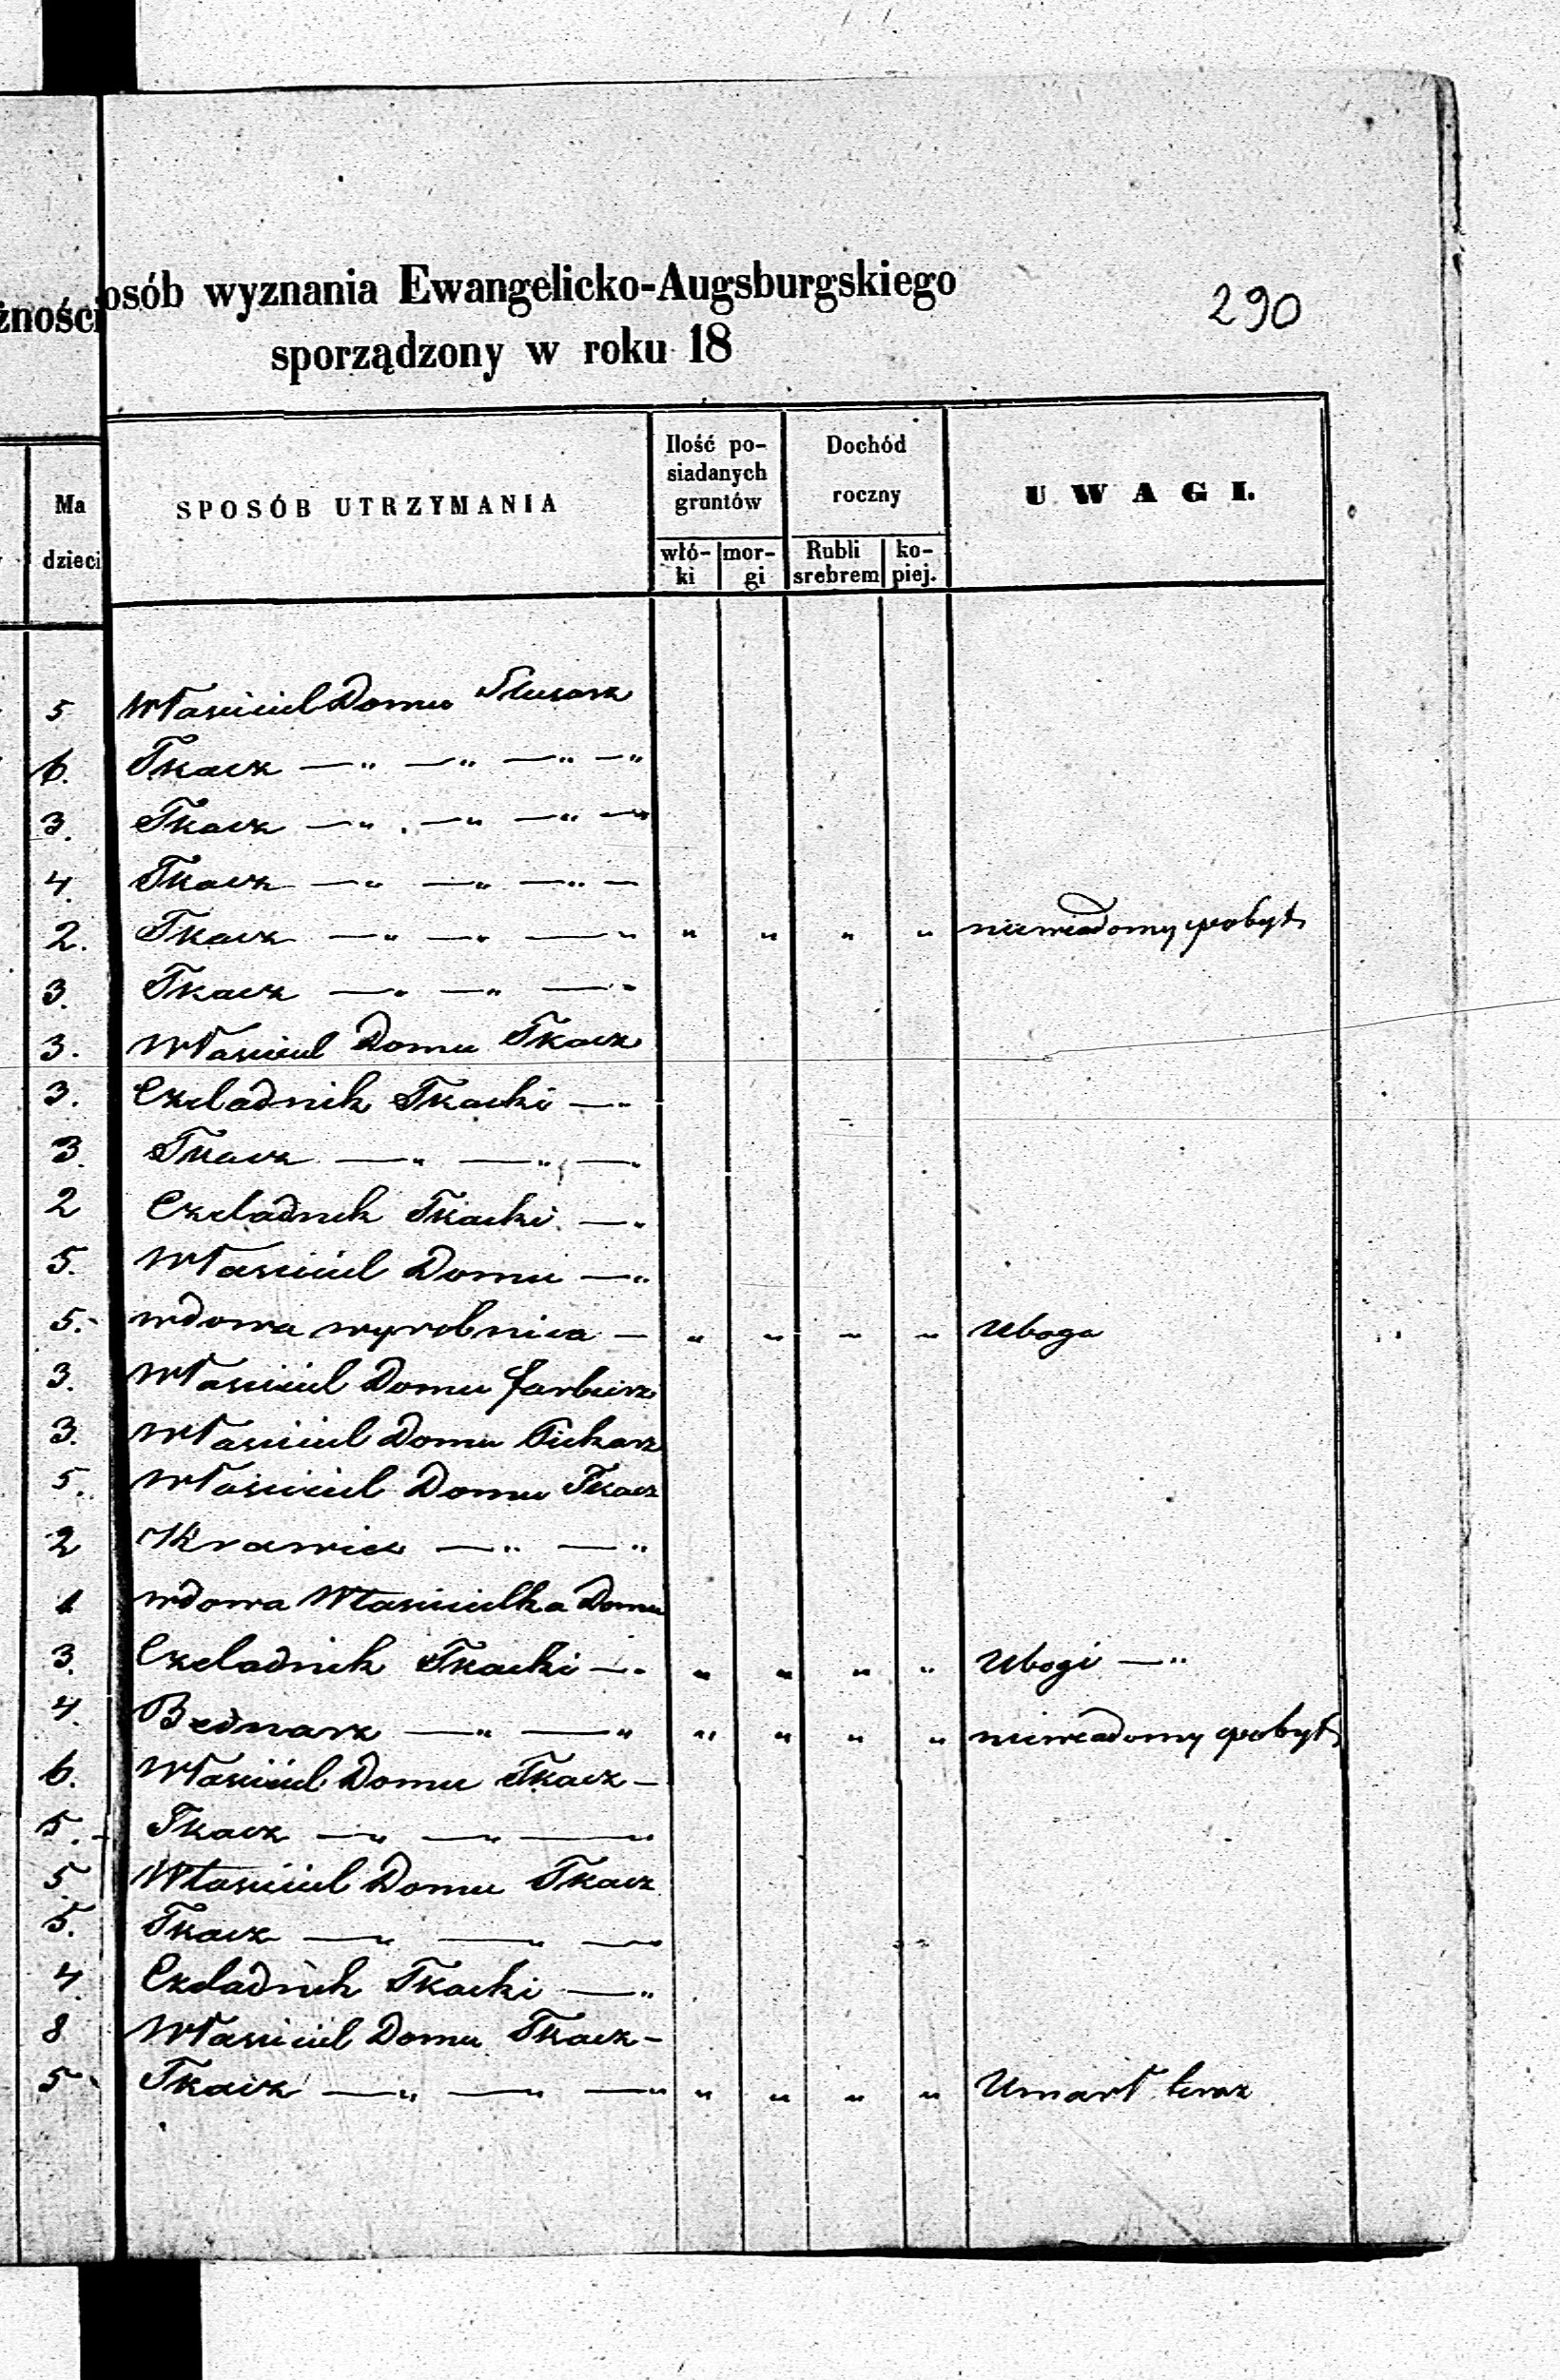 osób wyznania Ewangelicko-Augsburgskiego
żności
290
sporządzony w roku 18
Ma dzieci
SPOSÓB UTRZYMANIA
Ilość po-
siadanych
gruntów
włó-
ki
mor-
gi
Dochód
roczny
Rubli
srebrem
ko-
piej.
UWAGI.
5 Własciciel Domu Slusarz
6. Tkacz —„ —„ —„ —„
3. Tkacz —„ —„ —„ —„
4. Tkacz —„ —„ —„ —
2. Tkacz —„ —„ —„ „ „ „ „ niewiadomy pobyt
3. Tkacz —„ —„ —„
3. Własciciel Domu Tkacz
3. Czeladnik Tkacki —„
3. Tkacz —„ —„ —„
2 Czeladnik Tkacki —„
5. Własciciel Domu —„
5. wdowa wyrobnica — „ „ „ „ Uboga
3. Własciciel Domu farbierz
3. Własciciel Domu Piekarz
5. Własciciel Domu Tkacz
2 Krawiec —„ —„
1 wdowa Włascicielka Domu
3. Czeladnik Tkacki —„ „ „ „ „ Ubogi —„
4. Bednarz —„ —„ „ „ „ „ niewiadomy pobyt
6. Własciciel Domu Tkacz —
5. Tkacz —„ —„ —„
5 Własciciel Domu Tkacz
5. Tkacz —„ —„ —„
4. Czeladnik Tkacki —„
8 Własciciel Domu Tkacz —
5 Tkacz —„ —„ —„ „ „ „ „ Umarł teraz